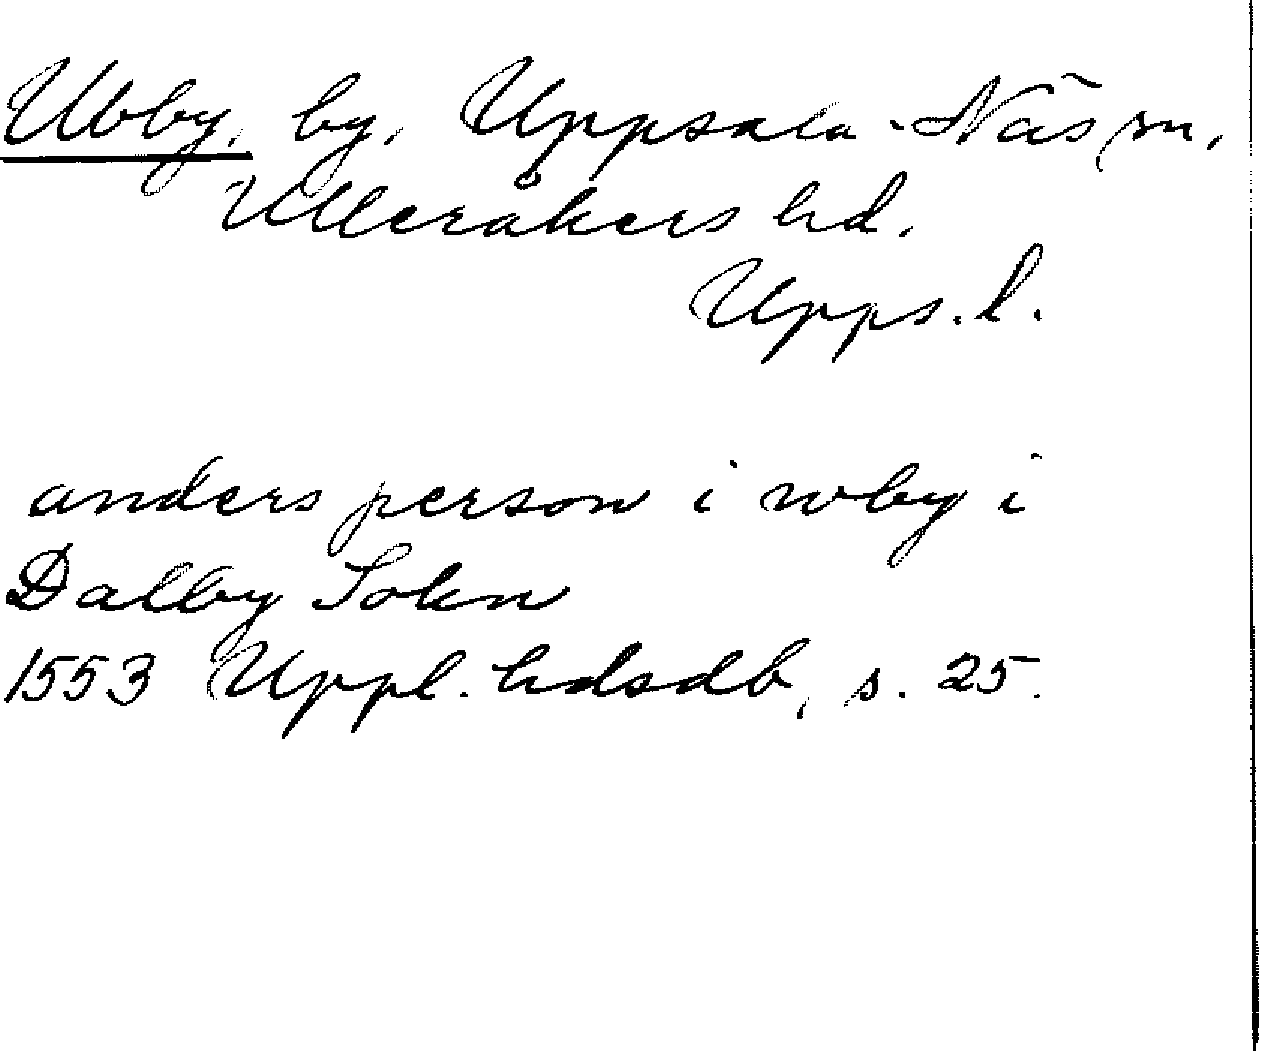 Ubby, by, Uppsala-Näs sn,
Ulleråkers hd.
Upps. l.
anders person i wby i
Dalby Sokn
1553 Uppl. hdsdb, s. 25.